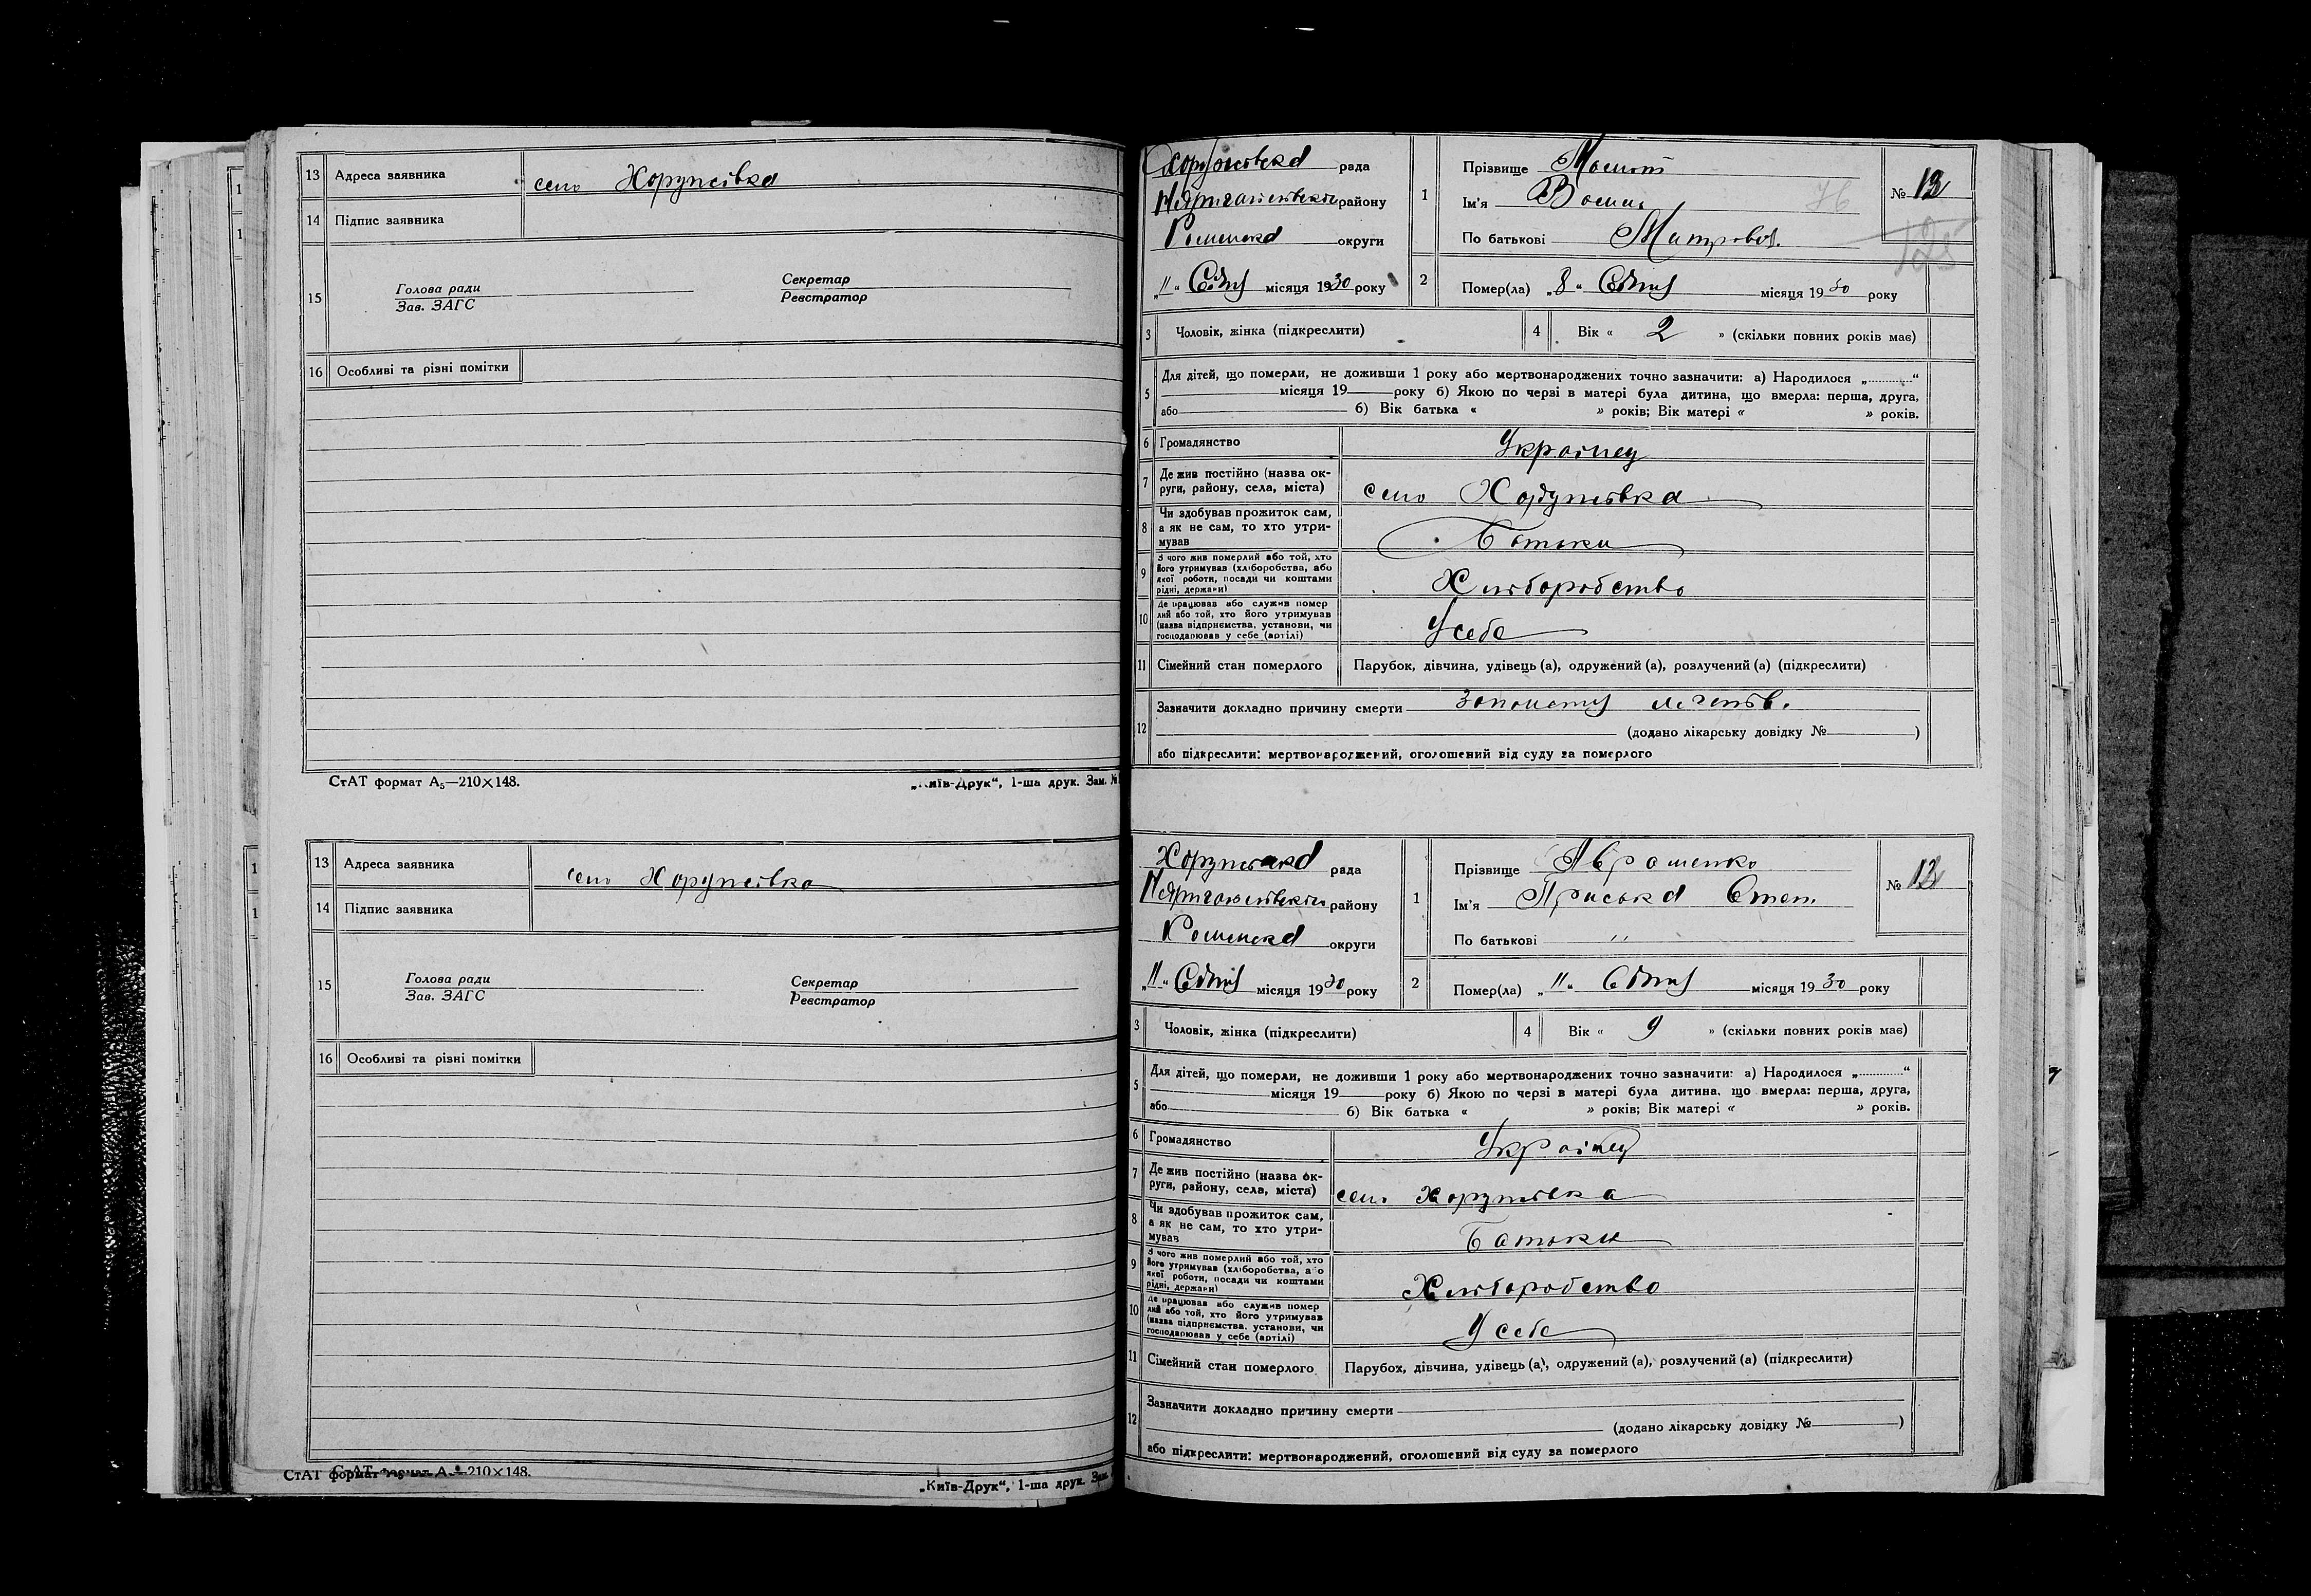 13 Адреса заявника село Хоружівка
14 Підпис заявника
15 Голова ради Секретар
Зав. ЗАГС Реєстратор
16 Особливі та різні помітки
СтАТ формат А₅—210×148. „Київ-Друк“, 1-ша друк. Зам. №
13 Адреса заявника село Хоружівка
14 Підпис заявника
15 Голова ради Секретар
Зав. ЗАГС Реєстратор
16 Особливі та різні помітки
СтАТ формат А 210×148.
„Київ-Друк“, 1-ша друк. Зам.
Хоружівська рада
району
Роменска округи
„11“ Січня місяця 1930 року
1 Прізвище
Ім'я
По батькові Митрович.
№ 12
125
2 Помер(ла) „8“ Січня місяця 1930 року
3 Чоловік, жінка (підкреслити) 4 Вік « 2 » (скільки повних років має)
5 Для дітей, що померли, не доживши 1 року або мертвонароджених точно зазначити: а) Народилося „............“
місяця 19 року б) Якою по черзі в матері була дитина, що вмерла: перша, друга,
або б) Вік батька « » років; Вік матері « » років.
6 Громадянство Українец
7 Де жив постійно (назва ок-
руги, району, села, міста) село Хоружівка
8 Чи здобував прожиток сам,
а як не сам, то хто утри-
мував Батьки
9 З чого жив померлий або той, хто
його утримував (хліборобства, або
якої роботи, посади чи коштами
рідні, держави) Хліборобство
10 Де працював або служив помер
лий або той, хто його утримував
(назва підприємства, установи, чи
господарював у себе (артілі) У себе
11 Сімейний стан померлого Парубок, дівчина, удівець (а), одружений (а), розлучений (а) (підкреслити)
12 Зазначити докладно причину смерти
(додано лікарську довідку № )
або підкреслити: мертвонароджений, оголошений від суду за померлого
рада
району
Роменска округи
„11“ Січня місяця 1930 року
1 Прізвище Авраменко
Ім'я Приська Степ.
По батькові "
№ 13
2 Помер(ла) „11“ Січня місяця 1930 року
3 Чоловік, жінка (підкреслити) 4 Вік « 9 » (скільки повних років має)
5 Для дітей, що померли, не доживши 1 року або мертвонароджених точно зазначити: а) Народилося „............“
місяця 19 року б) Якою по черзі в матері була дитина, що вмерла: перша, друга,
або б) Вік батька « » років; Вік матері « » років.
6 Громадянство Українец
7 Де жив постійно (назва ок-
руги, району, села, міста) село Хоружівка
8 Чи здобував прожиток сам,
а як не сам, то хто утри-
мував Батьки
9 З чого жив померлий або той, хто
його утримував (хліборобства, або
якої роботи, посади чи коштами
рідні, держави) Хліборобство
10 Де працював або служив помер
лий або той, хто його утримував
(назва підприємства, установи, чи
господарював у себе (артілі) У себе
11 Сімейний стан померлого Парубох, дівчина, удівець (а), одружений (а), розлучений (а) (підкреслити)
12 Зазначити докладно причину смерти
(додано лікарську довідку № )
або підкреслити: мертвонароджений, оголошений від суду за померлого